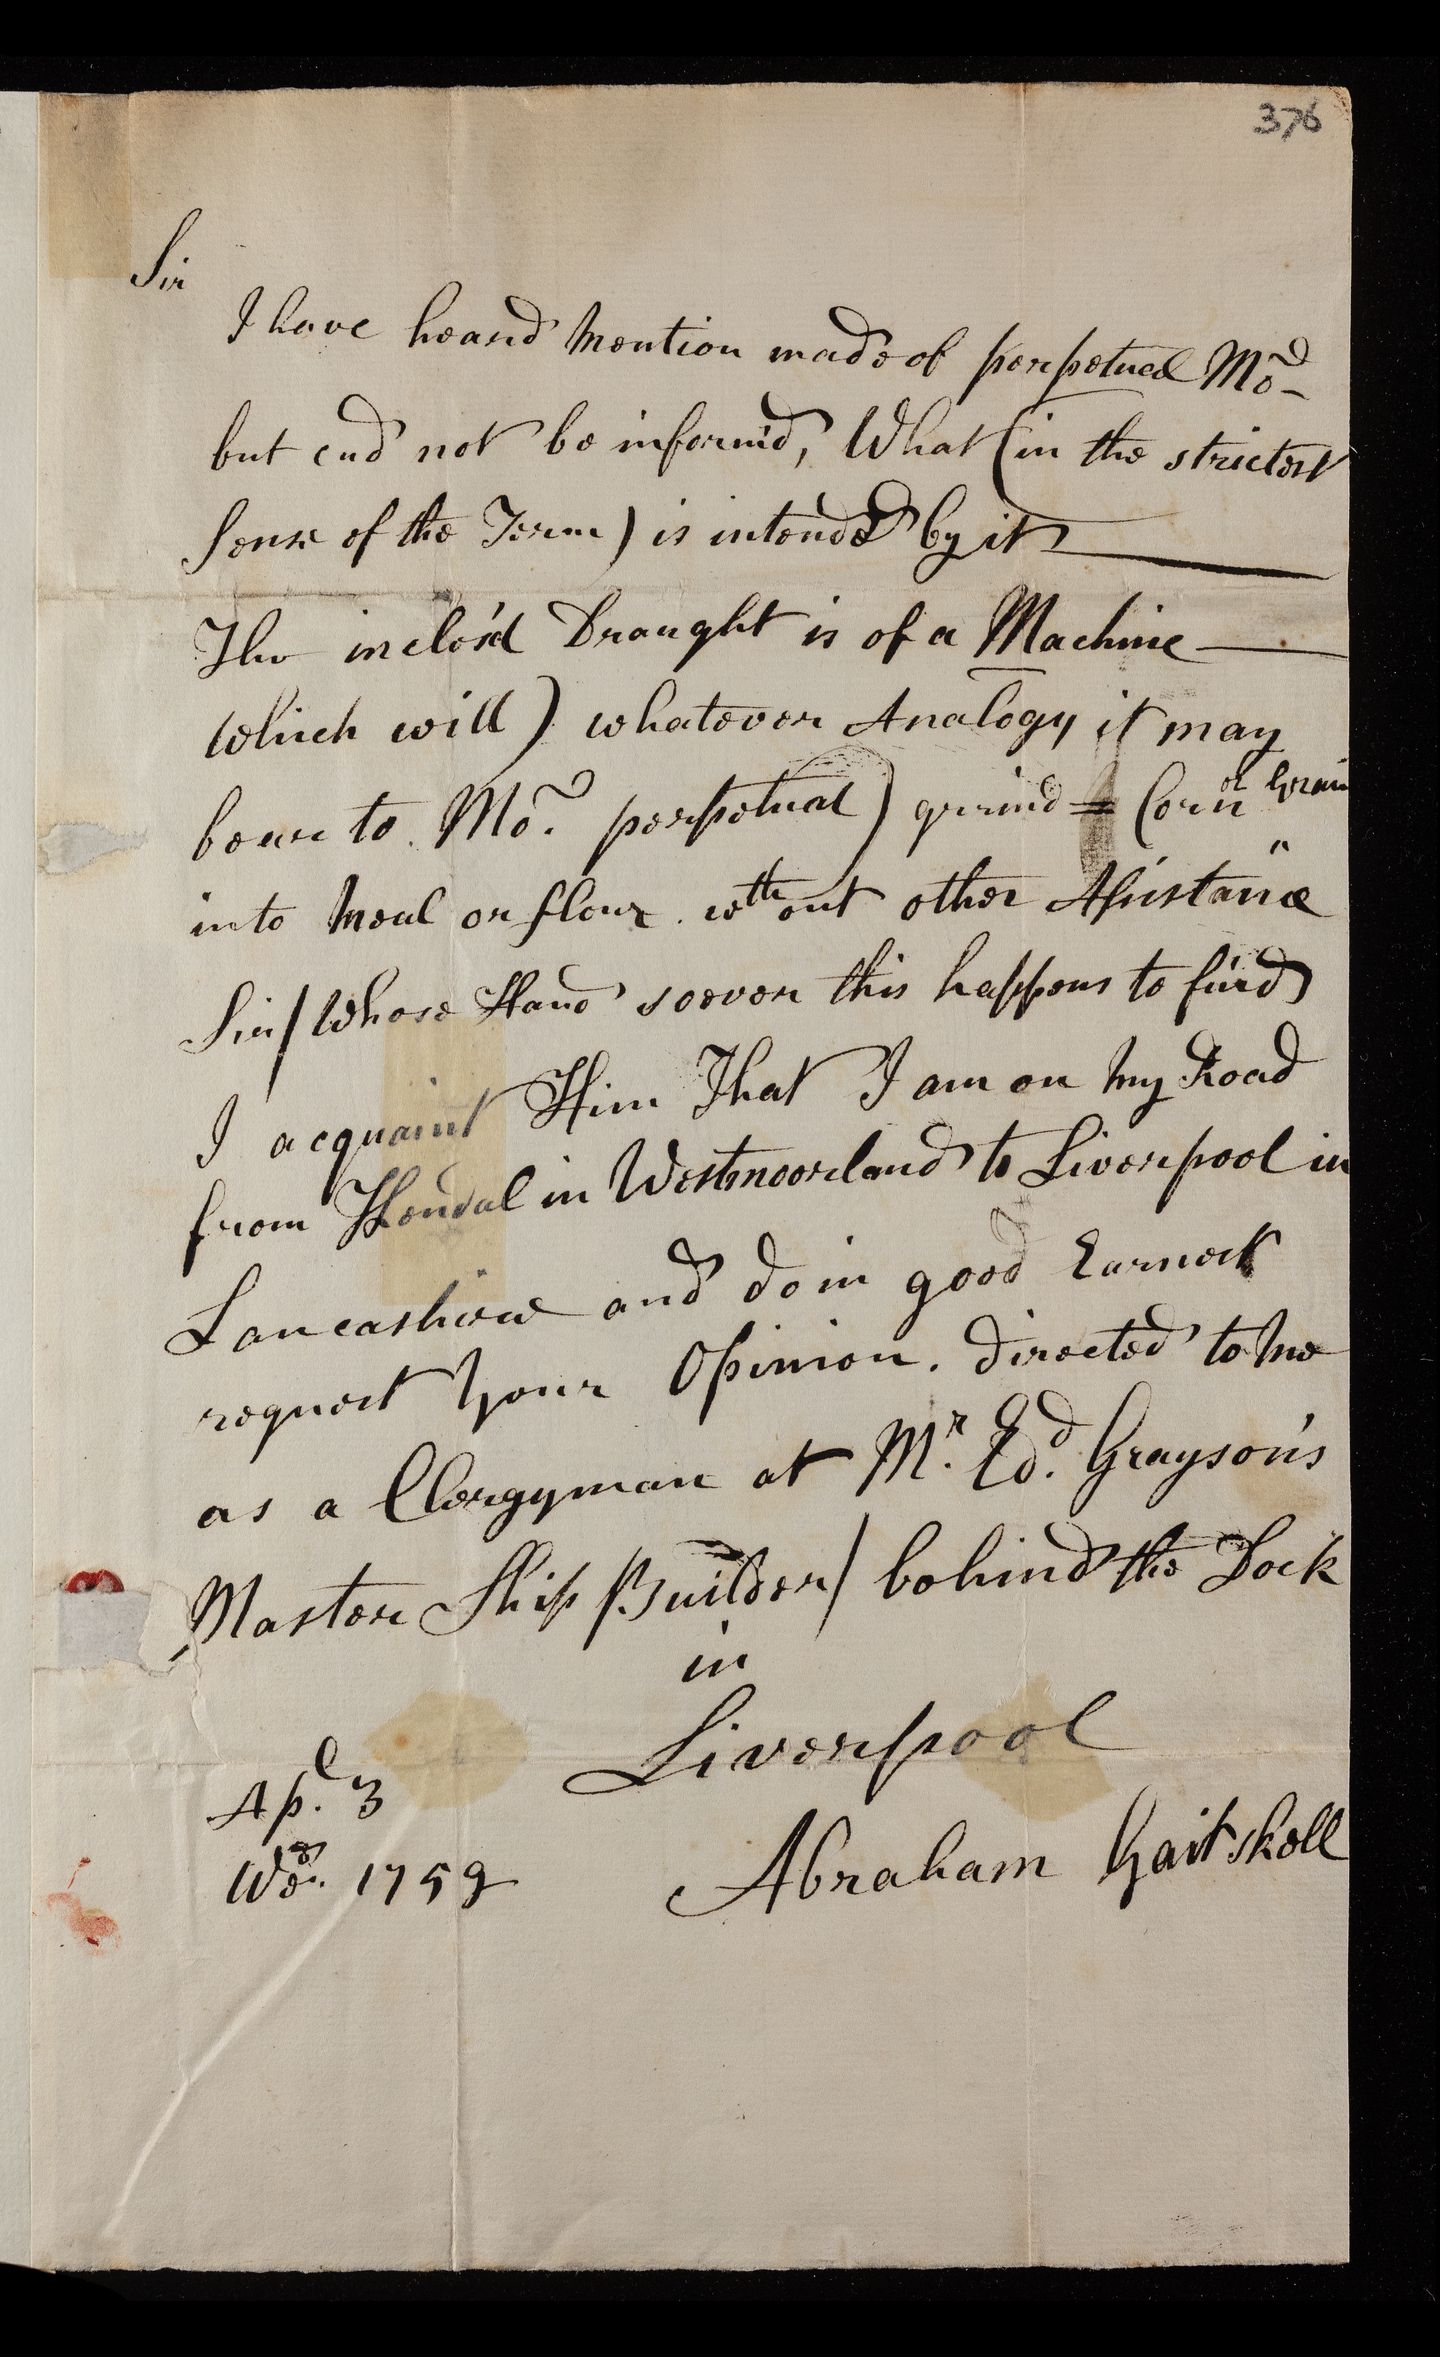 376
Sir
I have heard Mention made of perpetual Mo-
but cud not be inform'd, What (in the strictest
Sense of the Term) is intended by it
The inclos'd Draught is of a Machine
Which will) whatever Analogy it may
bear to Mo. perpetual) grind Corn or Grain
into Meal or flour wth out other Assistance
Sir/ Whose Hand soever this happens to find
I acquaint Him That I am on my Road
from Kendal in Westmoorland to Liverpool in
Lancashire and do in good Earnest
request Your Opinion. directed to Me
as a Clergyman at Mr. Ed. Grayson's
Master Ship Builder/ behind the Dock
in
Liverpool
Apl. 3
1759
Abraham Gaitskell